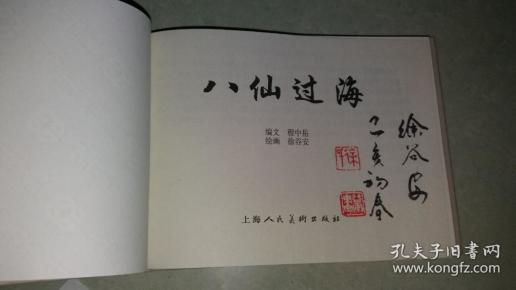 八仙过海
编文 程中岳
绘画 徐谷安
徐谷安
己亥初春
上海人民美术出版社
孔夫子旧书网